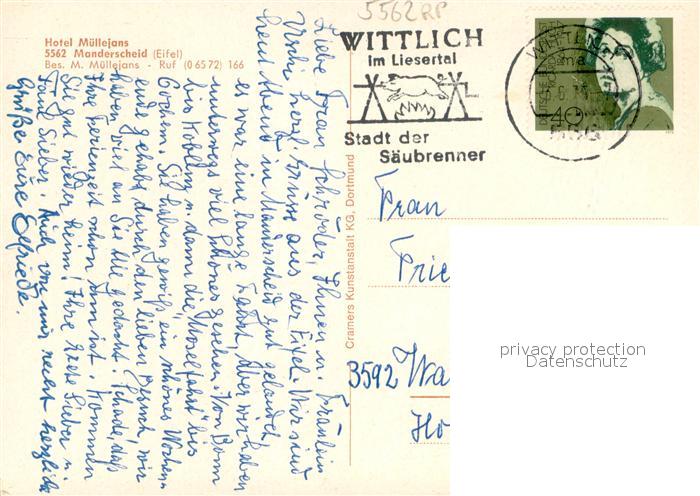 Hotel Müllejans
5562 Manderscheid (Eifel)
Bes. M. Müllejans - Ruf (0 65 72) 166
5562 RP
WITTLICH
im Liesertal
Stadt der
Säubrenner
WITTLICH
40
Cramers Kunstanstalt KG, Dortmund
Liebe Frau Schröder, Ihnen u. Fräulein
herzl. Grüße aus der Eifel. Wir sind
heut Abend in Manderscheid gut gelandet,
es war eine lange Fahrt, aber wir haben
unterwegs viel schönes gesehen. Von Bonn
bis Koblenz u. dann die "Moselfahrt" bis
Cochem. Sie haben gewiß ein schönes Wochen-
end gehabt durch den lieben Besuch, wir
haben viel an Sie alle gedacht. Schade, daß
Ihre Ferienzeit schon um ist. Kommen
Sie gut wieder heim! Ihre Grete Sieber u.
Fam. Sieber. Auch von mir recht herzliche
Grüße Eure Elfriede.
Frau
Frie
3592 Wa
Ho
privacy protection
Datenschutz